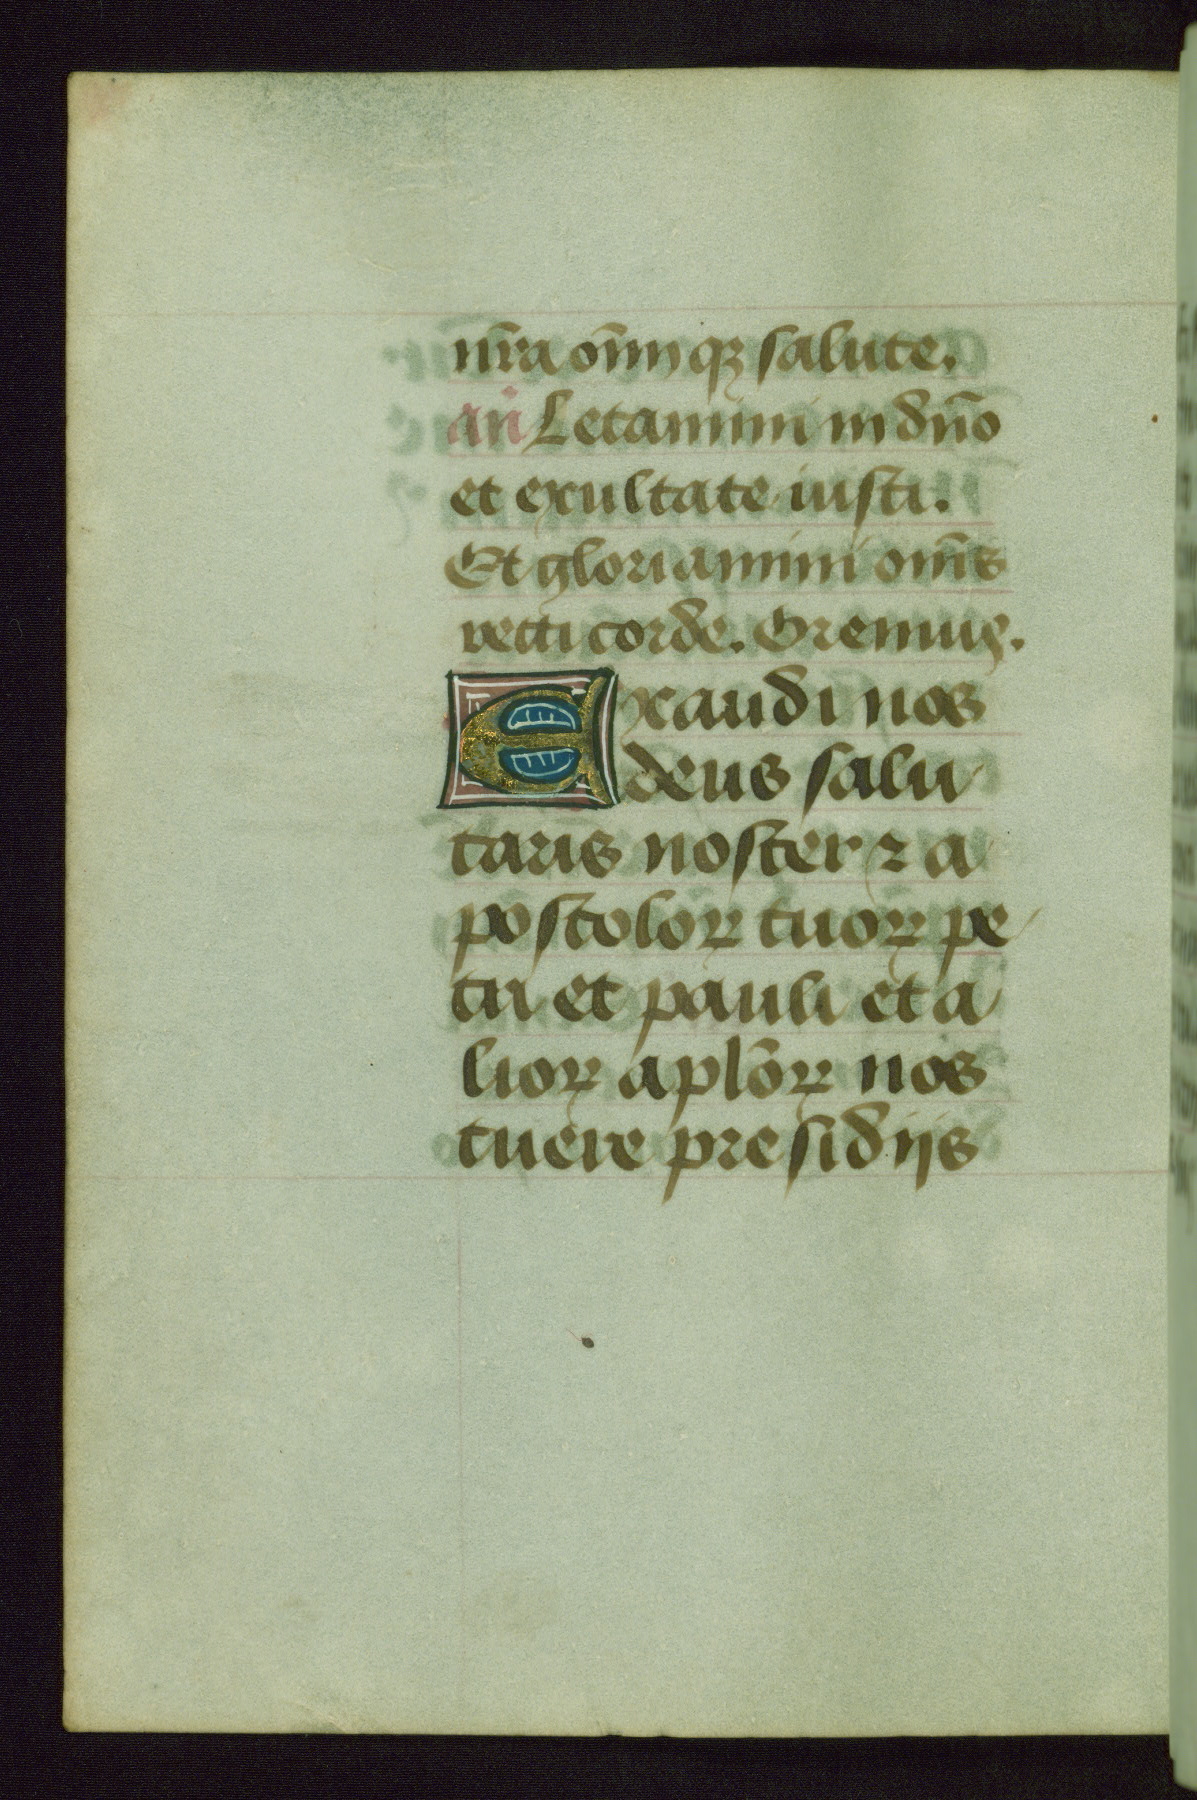 nr̄a oīm̄ qꝫ salute.
an̄ Letamini in dn̄o
et exultate iusti.
Et gloriamini om̄s
recti corde. Oremus.
Exaudi nos
deus salu
taris noster ⁊ a
postoloꝝ tuoꝝ pe
tri et pauli et a
lioꝝ apl̄oꝝ nos
tuere presidijs